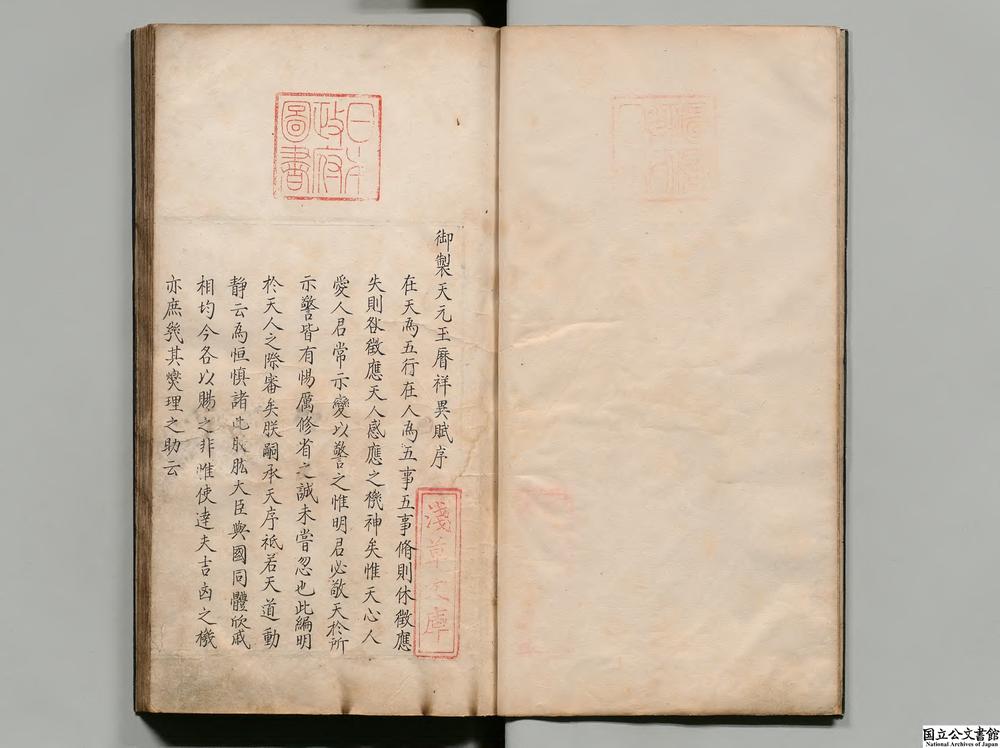 御製天元玉曆祥異賦序
在天爲五行在人爲五事五事脩則休徵應
失則咎徵應天人感應之機神矣惟天心人
愛人君常示變以警之惟明君必敬天於所
示警皆有惕厲修省之誠未嘗忽也此編明
於天人之際審矣朕嗣承天序祗若天道動
靜云爲恒慎諸此股肱大臣與國同體欣戚
相均今各以賜之非惟使達夫吉凶之機
亦庶幾其爕理之助云
日本
政府
圖書
淺草文庫
国立公文書館
National Archives of Japan